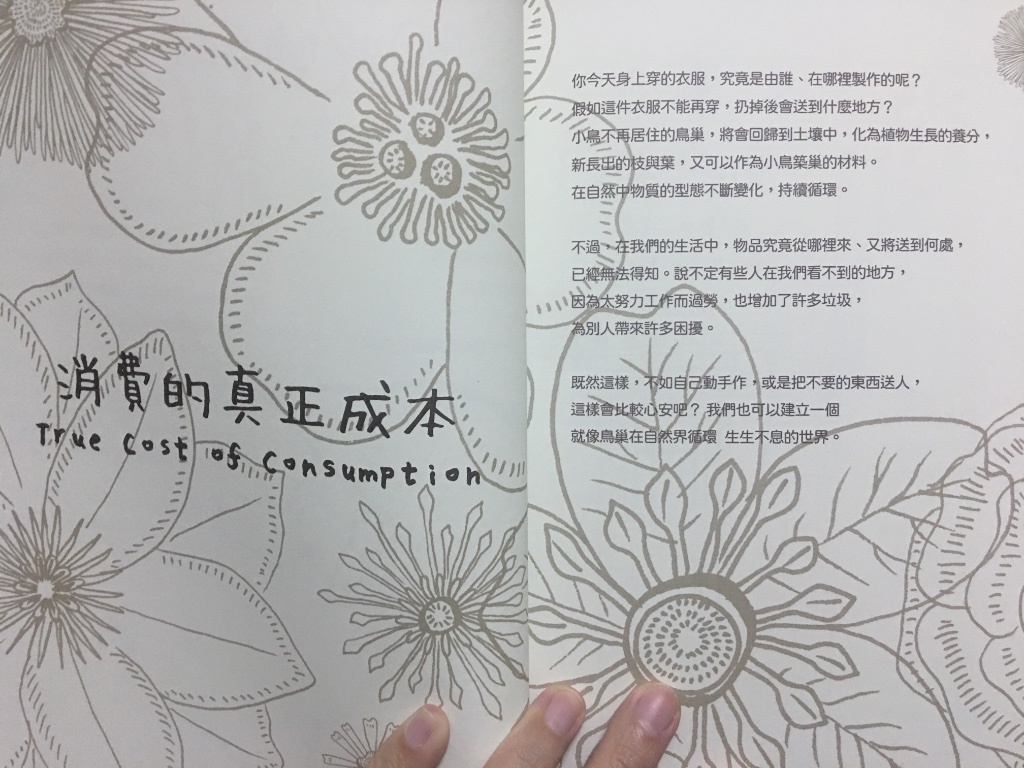 消費的真正成本
True Cost of Consumption
你今天身上穿的衣服，究竟是由誰、在哪裡製作的呢？
假如這件衣服不能再穿，扔掉後會送到什麼地方？
小鳥不再居住的鳥巢，將會回歸到土壤中，化為植物生長的養分，
新長出的枝與葉，又可以作為小鳥築巢的材料。
在自然中物質的型態不斷變化，持續循環。
不過，在我們的生活中，物品究竟從哪裡來、又將送到何處，
已經無法得知。說不定有些人在我們看不到的地方，
因為太努力工作而過勞，也增加了許多垃圾，
為別人帶來許多困擾。
既然這樣，不如自己動手作，或是把不要的東西送人，
這樣會比較心安吧？ 我們也可以建立一個
就像鳥巢在自然界循環 生生不息的世界。